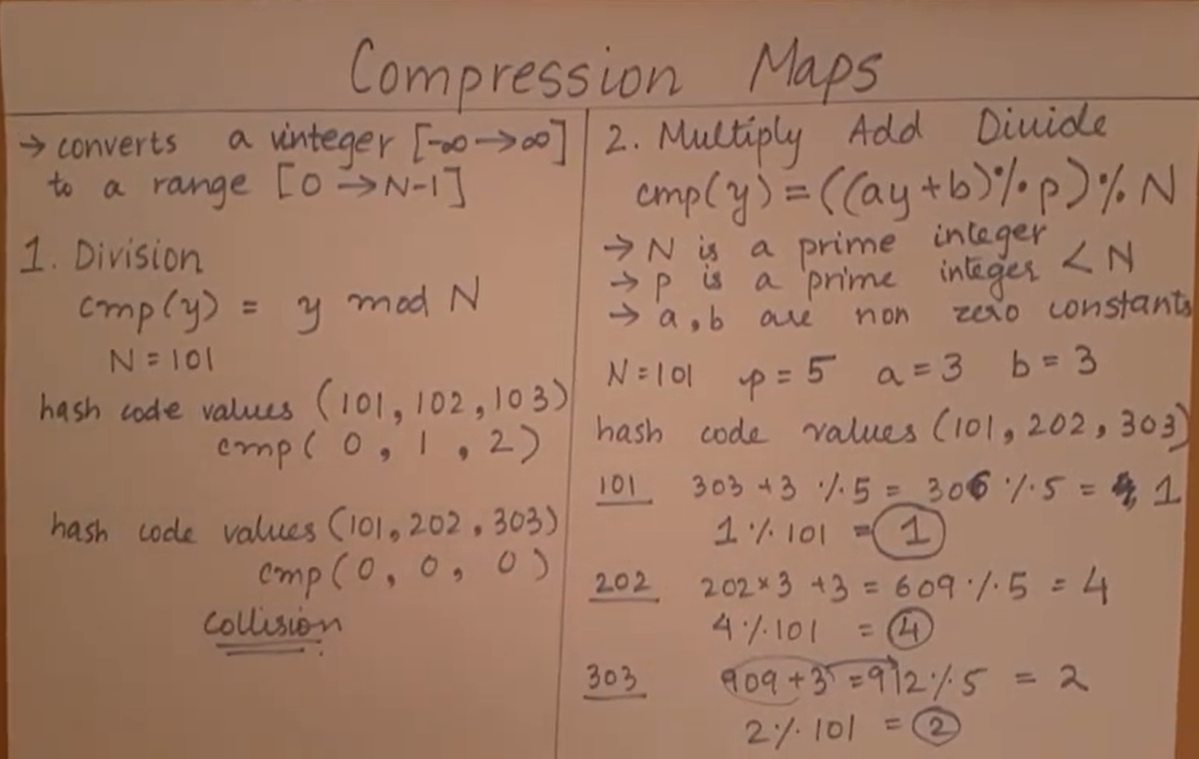 Compression Maps
→ converts a integer [-∞→∞]
to a range [0→N-1]
1. Division
cmp(y) = y mod N
N=101
hash code values (101, 102, 103)
cmp( 0, 1, 2)
hash code values (101, 202, 303)
cmp(0, 0, 0)
Collision
2. Multiply Add Divide
cmp(y) = ((ay+b)%p)%N
→ N is a prime integer
→ p is a prime integer < N
→ a,b are non zero constants
N=101 p=5 a=3 b=3
hash code values (101, 202, 303)
101 303+3 %5 = 306 %5 = 1
1%101 = 1
202 202×3 +3 = 609 %5 = 4
4%101 = 4
303 909+3 = 912%5 = 2
2%101 = 2